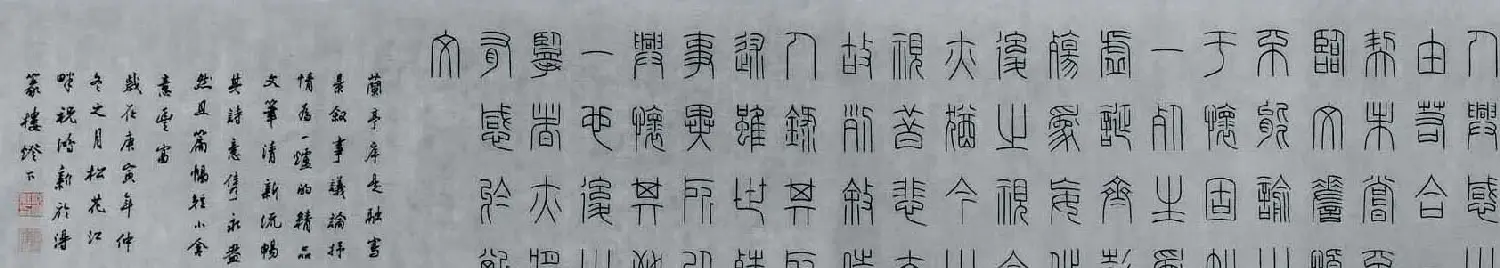 人興感之
由若合一
契未嘗不
臨文嗟悼
不能喻之
于懷固知
一死生為
虛誕齊彭
殤為妄作
後之視今
亦猶今之
視昔悲夫
故列敘時
人錄其所
述雖世殊
事異所以
興懷其致
一也後之
覽者亦將
有感於斯
文
蘭亭序是融寫
景敘事議論抒
情為一爐的精品
文筆清新流暢
其詩意雋永盡
然且篇幅短小含
意豐富
歲在庚寅年仲
冬之月松花江
畔祝鴻新於得
篆樓燈下